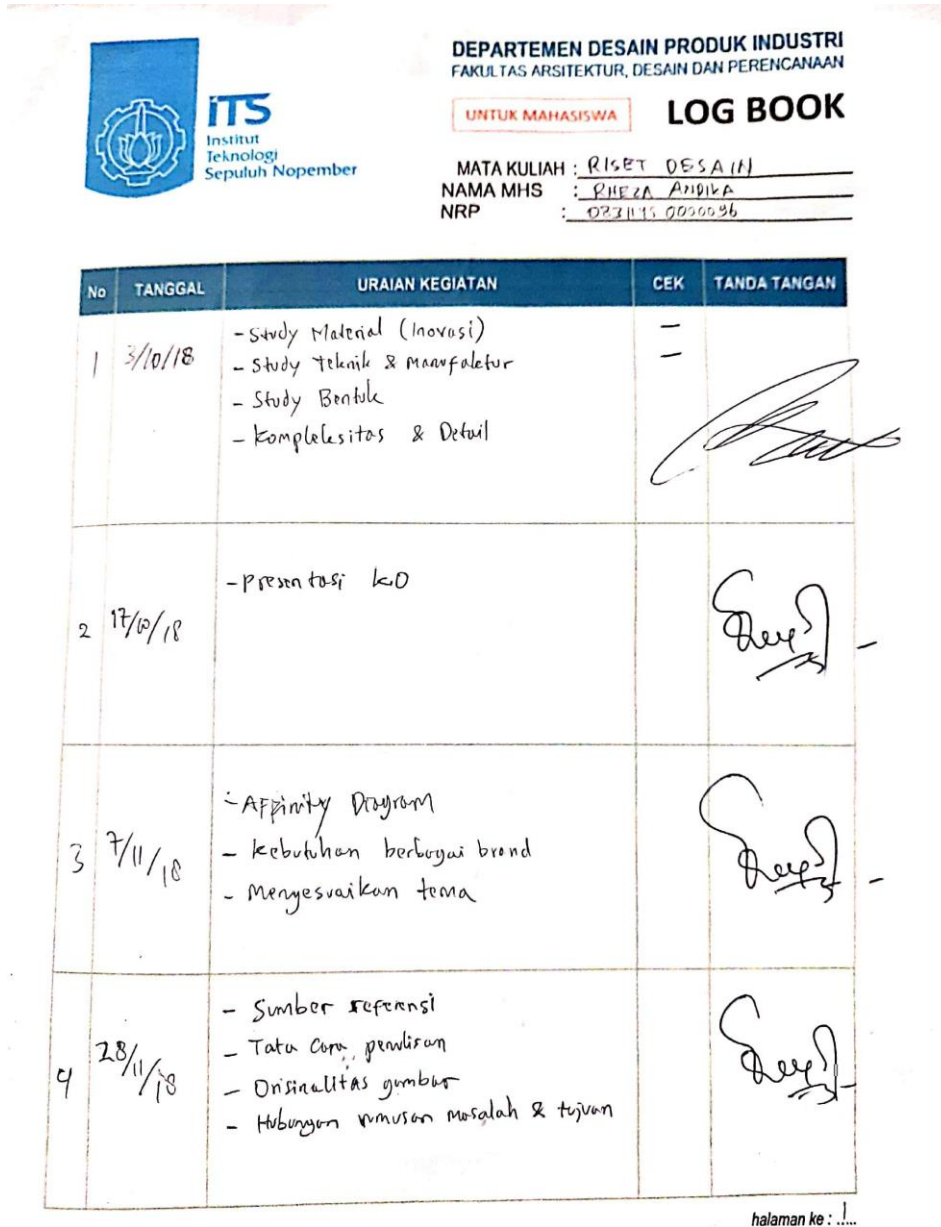 DEPARTEMEN DESAIN PRODUK INDUSTRI
FAKULTAS ARSITEKTUR, DESAIN DAN PERENCANAAN
UNTUK MAHASISWA
LOG BOOK
iTS
Institut
Teknologi
Sepuluh Nopember
MATA KULIAH : RISET DESAIN
NAMA MHS : RHEZA ANDIKA
NRP :
No TANGGAL URAIAN KEGIATAN CEK TANDA TANGAN
1 3/10/18
- Study Material (Inovasi)
- Study Teknik & Manufaktur
- Study Bentuk
- Kompleksitas & Detail
2 17/10/18
- Presentasi KD
3 7/11/18
- Affinity Diagram
- Kebutuhan berbagai brand
- Menyesuaikan tema
4 28/11/18
- Sumber referensi
- Tata Cara penulisan
- Orisinalitas gambar
- Hubungan rumusan masalah & tujuan
halaman ke : 1